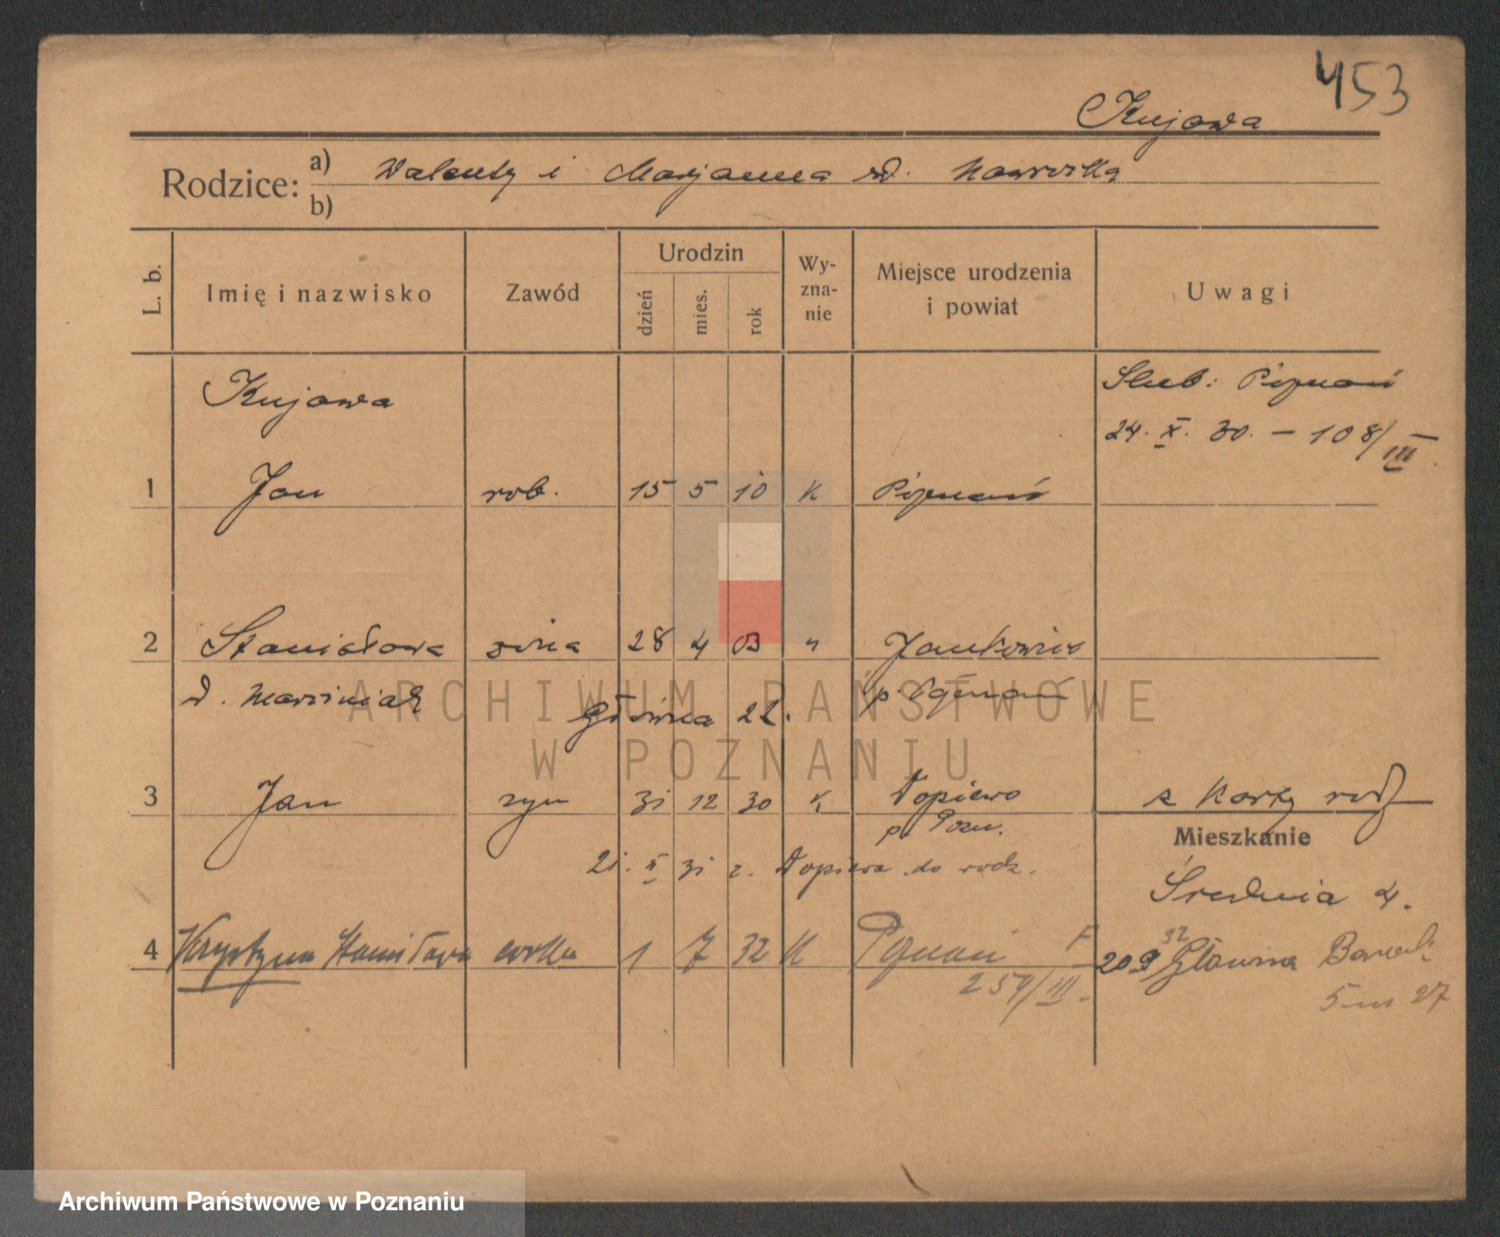 453
Kujawa
Rodzice: a) Walenty i Marjanna d. Nawrocka
b)
L. b. Imię i nazwisko Zawód Urodzin dzień mies. rok Wy-zna-nie Miejsce urodzenia i powiat Uwagi
Kujawa Ślub: Poznań
24. X. 30. – 108/III
1 Jan rob. 15 5 10 k Poznań
2 Stanisława żona 28 4 03 " Jankowice
d. Marciniak Główna 22. p. Poznań
ARCHIWUM PAŃSTWOWE
W POZNANIU
3 Jan syn 31 12 30 k Dopiewo z karty rodz
p. Pozn. Mieszkanie
21. II 31 r. Dopiewo do rodz.
Średnia 4.
4 Krystyna Stanisława córka 1 7 32 k Poznań F
257/III. 20 9 32 Główna Barak
5 m 27
Archiwum Państwowe w Poznaniu